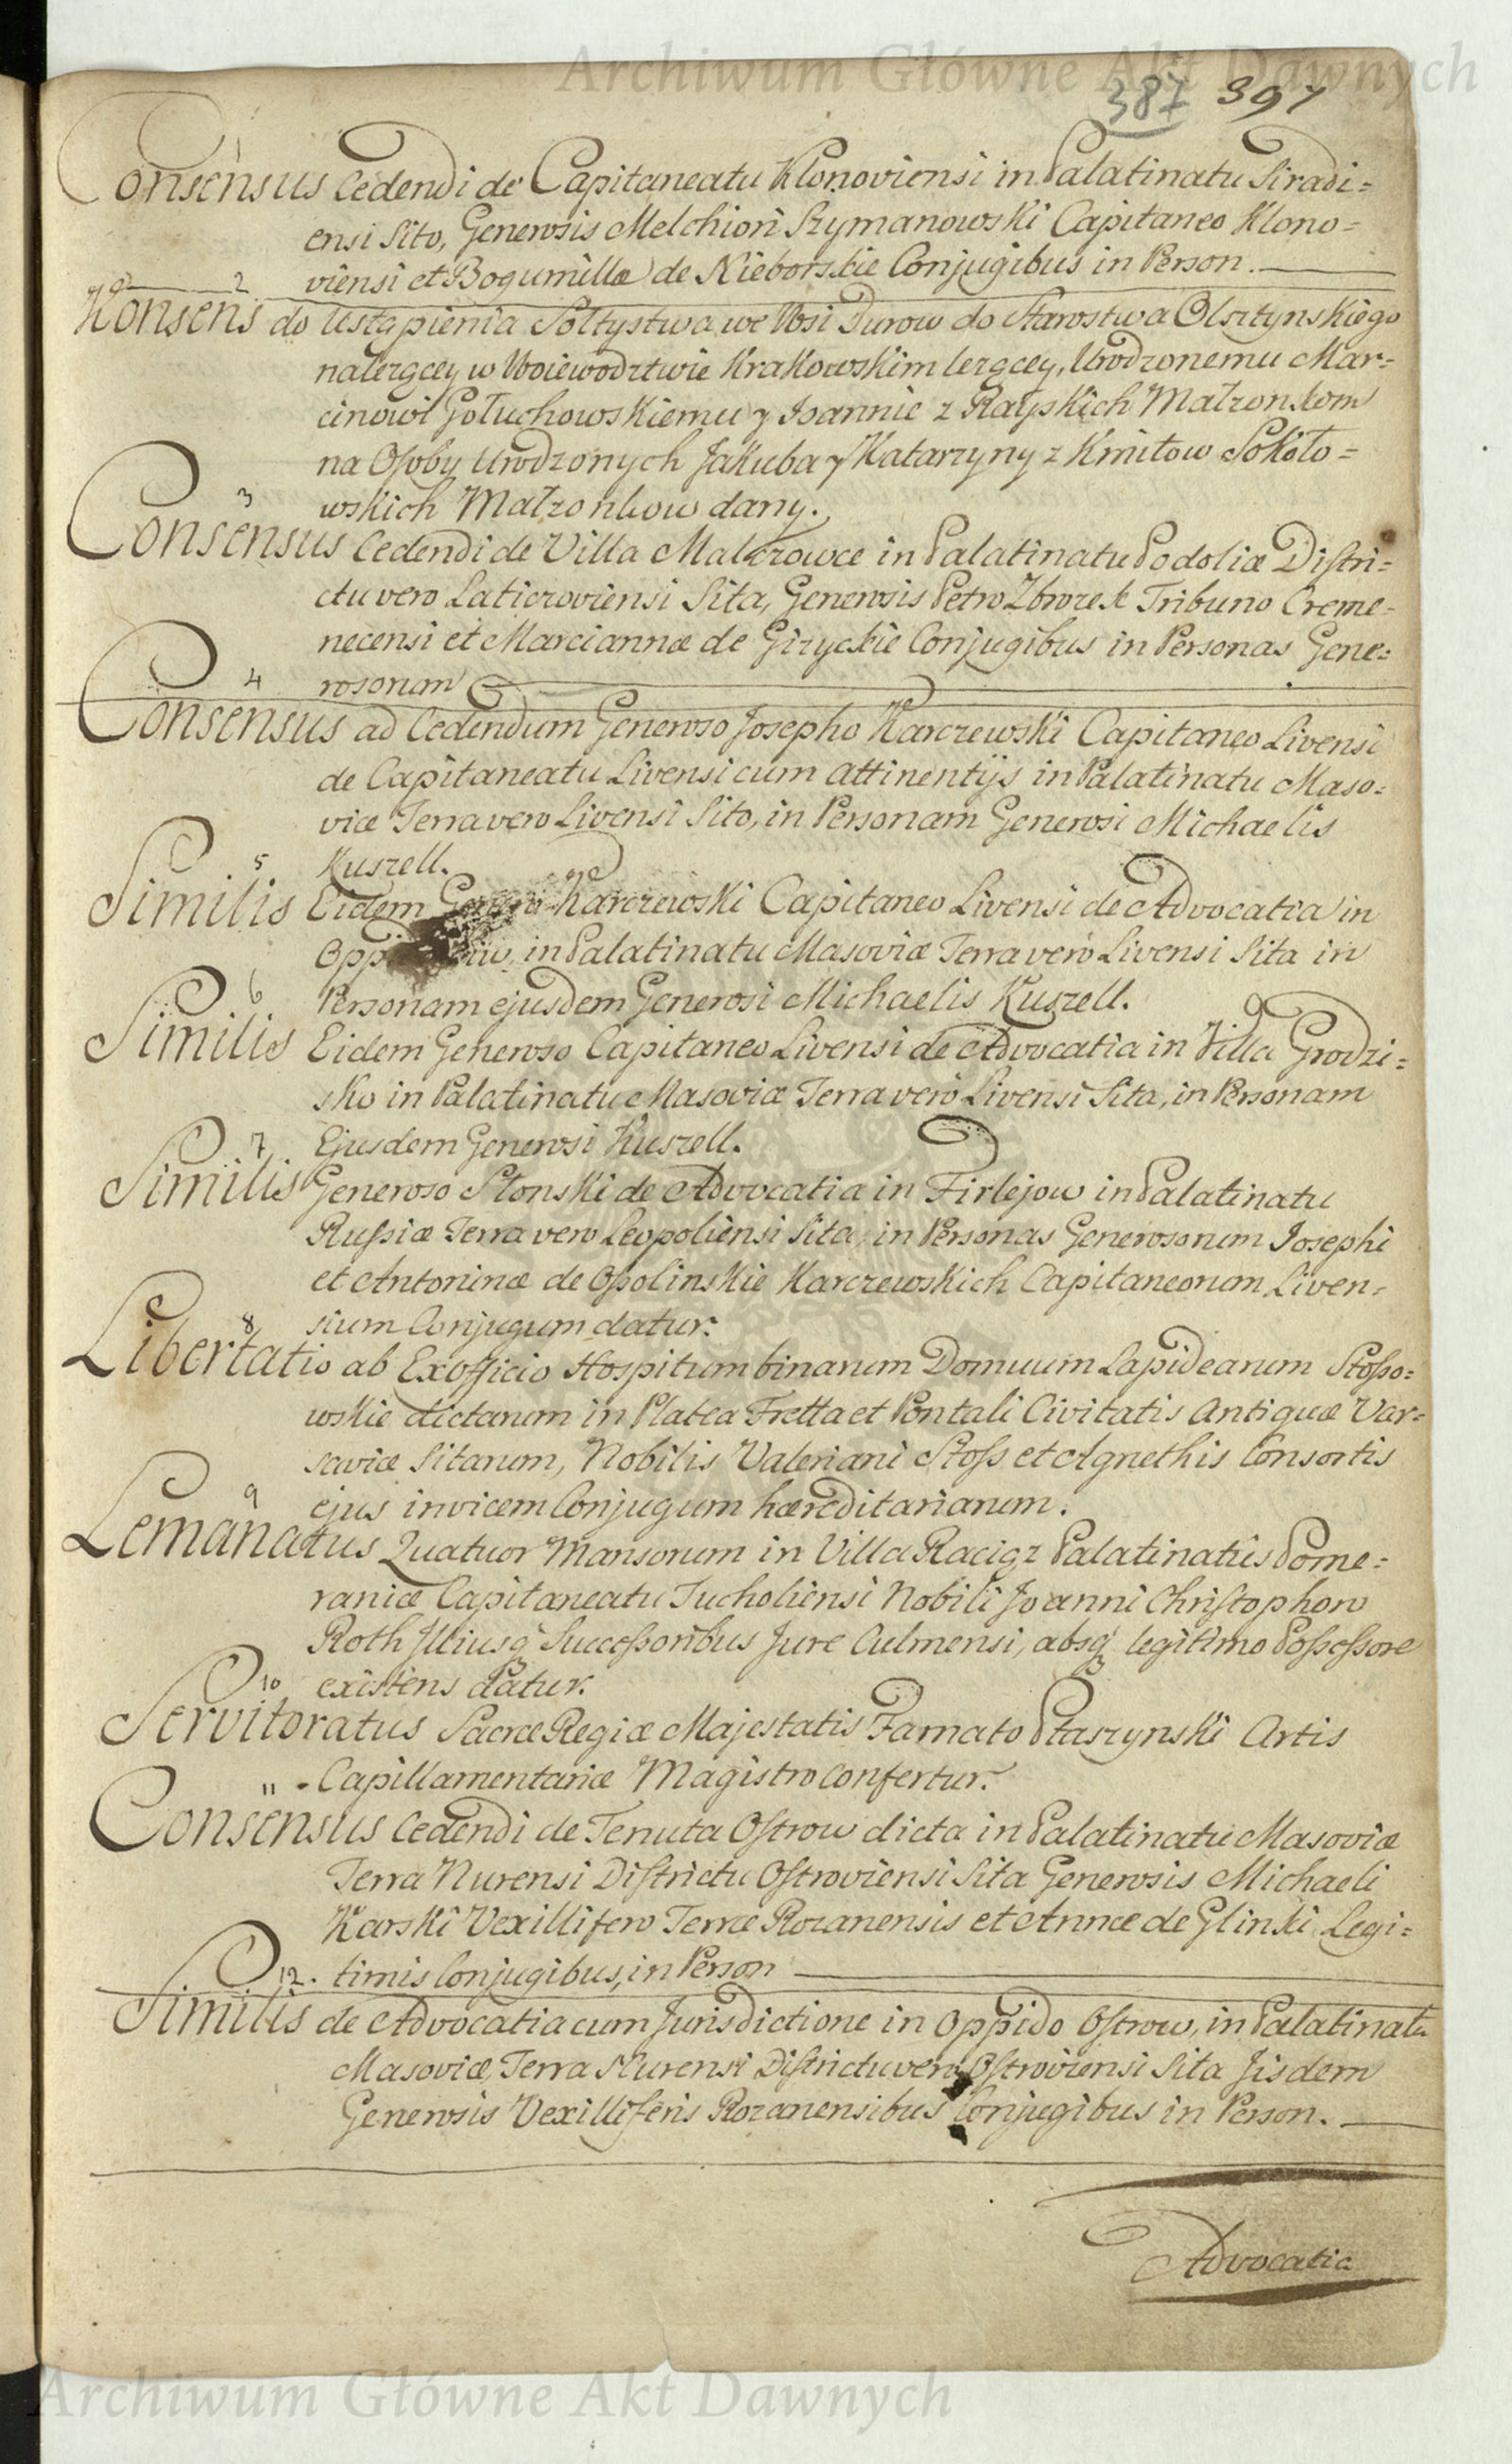 Archiwum Główne Akt Dawnych
387 397
1
Consensus Cedendi de Capitaneatu Klonoviensi in Palatinatu Siradi=
ensi Sito, Generosis Melchiori Szymanowski Capitaneo Klono=
viensi et Bogumillæ de Nieborskie Conjugibus in Person.
2
Konsens do Ustąpienia Sołtystwa we Wsi Durow do Starostwa Olsztynskiego
należącey w Woiewodztwie Krakowskim leżącey, Urodzonemu Mar=
cinowi Gołuchowskiemu y Joannie z Rayskich Małżonkom
na Osoby Urodzonych Jakuba y Katarzyny z Kmitow Sokoło=
wskich Małżonkow dany.
3
Consensus Cedendi de Villa Malczowce in Palatinatu Podoliæ Distri=
ctu vero Laticzoviensi Sita, Generosis Petro Zbrozek Tribuno Creme=
necensi et Marciannæ de Gizyckie Conjugibus in Personas Gene=
rosorum
4
Consensus ad Cedendum Generoso Josepho Karczewski Capitaneo Livensi
de Capitaneatu Livensi cum attinentijs in Palatinatu Maso=
viæ Terra vero Livensi Sito, in Personam Generosi Michaelis
Kuszell.
5
Similis Eidem Karczewski Capitaneo Livensi de Advocatia in
in Palatinatu Masoviæ Terra vero Livensi Sita in
Personam ejusdem Generosi Michaelis Kuszell.
6
Similis Eidem Generoso Capitaneo Livensi de Advocatia in Villa Grodzi=
sko in Palatinatu Masoviæ Terra vero Livensi Sita, in Personam
Ejusdem Generosi Kuszell.
7
Similis Generoso Słonski de Advocatia in Firlejow in Palatinatu
Russiæ Terra vero Leopoliensi Sita, in Personas Generosorum Josephi
et Antoninæ de Ossolinskie Karczewskich Capitaneorum Liven=
sium Conjugum datur.
8
Libertatio ab Exofficio Hospitum binarum Domuum Lapidearum Stosso=
wskie dictarum in Platea Fretta et Pontali Civitatis Antiquæ Var=
saviæ Sitarum, Nobilis Valeriani Stoss et Agnethis Consortis
ejus invicem Conjugum hæreditariarum.
9
Lemanatus Quatuor Mansorum in Villa Raciąz Palatinatûs Pome=
raniæ Capitaneatu Tucholiensi Nobili Joanni Christophoro
Roth Illiusq3 Successoribus Jure Culmensi, absq3 legitimo Possessore
existens datur.
10
Servitoratus Sacræ Regiæ Majestatis Famato Ptaszynski Artis
Capillamentariæ Magistro confertur.
11
Consensus Cedendi de Tenuta Ostrow dicta in Palatinatu Masoviæ
Terra Nurensi Districtu Ostroviensi Sita Generosis Michaeli
Karski Vexillifero Terræ Rozanensis et Annæ de Glinski Legi=
timis Conjugibus, in Person
12.
Similis de Advocatia cum Jurisdictione in Oppido Ostrow, in Palatinatu
Masoviæ, Terra Nurensi Districtu vero Ostroviensi Sita Jisdem
Generosis Vexilliferis Rozanensibus Conjugibus in Person.
Advocatia
Archiwum Główne Akt Dawnych